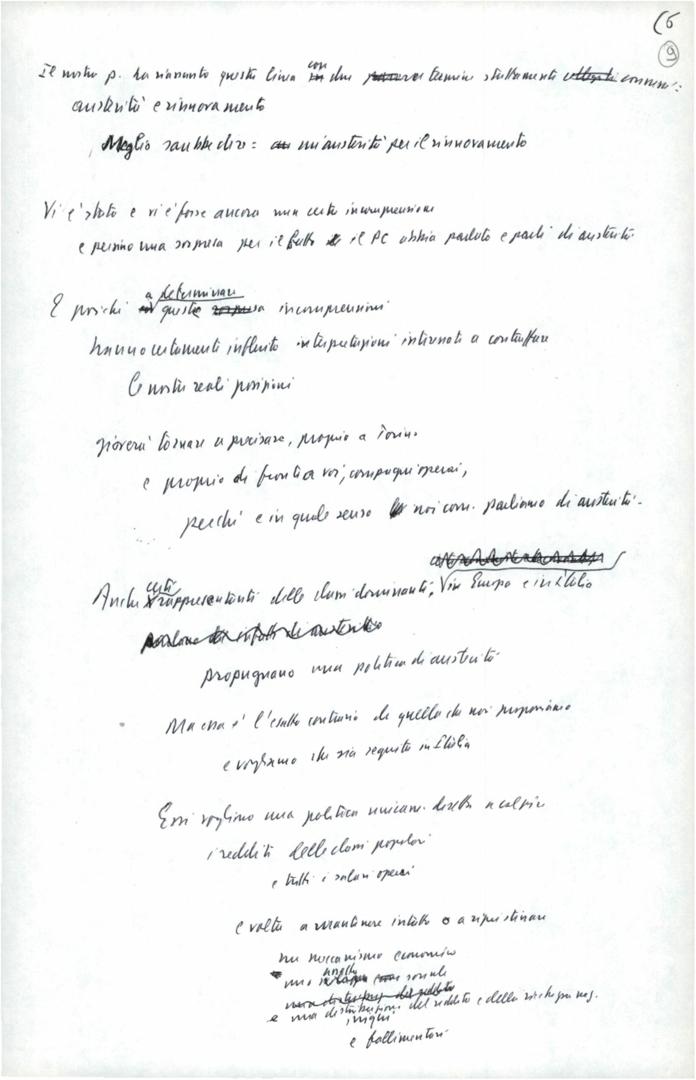 16
9
Il nostro p. ha riassunto questa linea con due termini strettamente connessi:
austerità e rinnovamento
Meglio sarebbe dire: un'austerità per il rinnovamento
Vi è stata e vi è forse ancora una certa incomprensione
e persino una sorpresa per il fatto il PC abbia parlato e parli di austerità.
E poiché a determinare queste incomprensioni
hanno certamente influito interpretazioni interessate a contraffare
le nostre reali posizioni
gioverà tornare a precisare, proprio a Torino
e proprio di fronte a voi, compagni operai,
perché e in quale senso noi com. parliamo di austerità.
Anche certi rappresentanti delle classi dominanti, in Europa e in Italia
propugnano una politica di austerità
Ma essa è l'esatto contrario di quella che noi proponiamo
e vogliamo che sia seguita in Italia
Essi vogliono una politica unicam. diretta a colpire
i redditi delle classi popolari
e tutti i salari operai
e volta a mantenere intatto o a ripristinare
un meccanismo economico
uno sociale
e una distribuzione del reddito e della ricchezza naz.
iniqui
e fallimentari